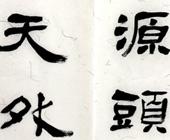 源頭
天外